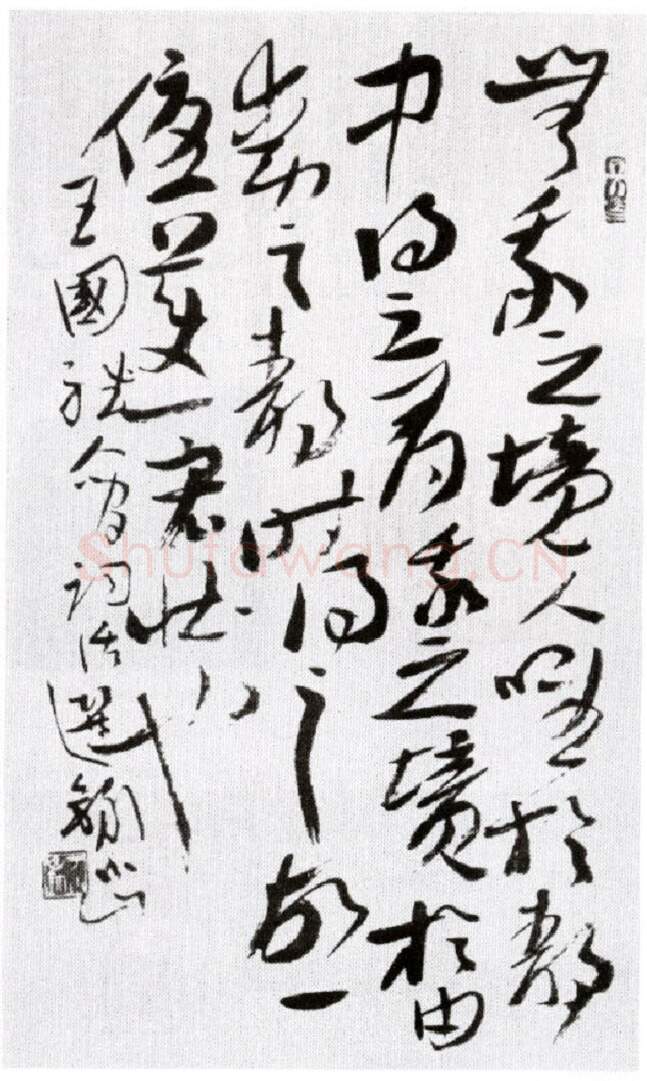 無我之境人唯於靜
中得之有我之境於由
動之靜時得之故一
優美一宏壯也
王國維人間詞話選山
Shufawang.CN